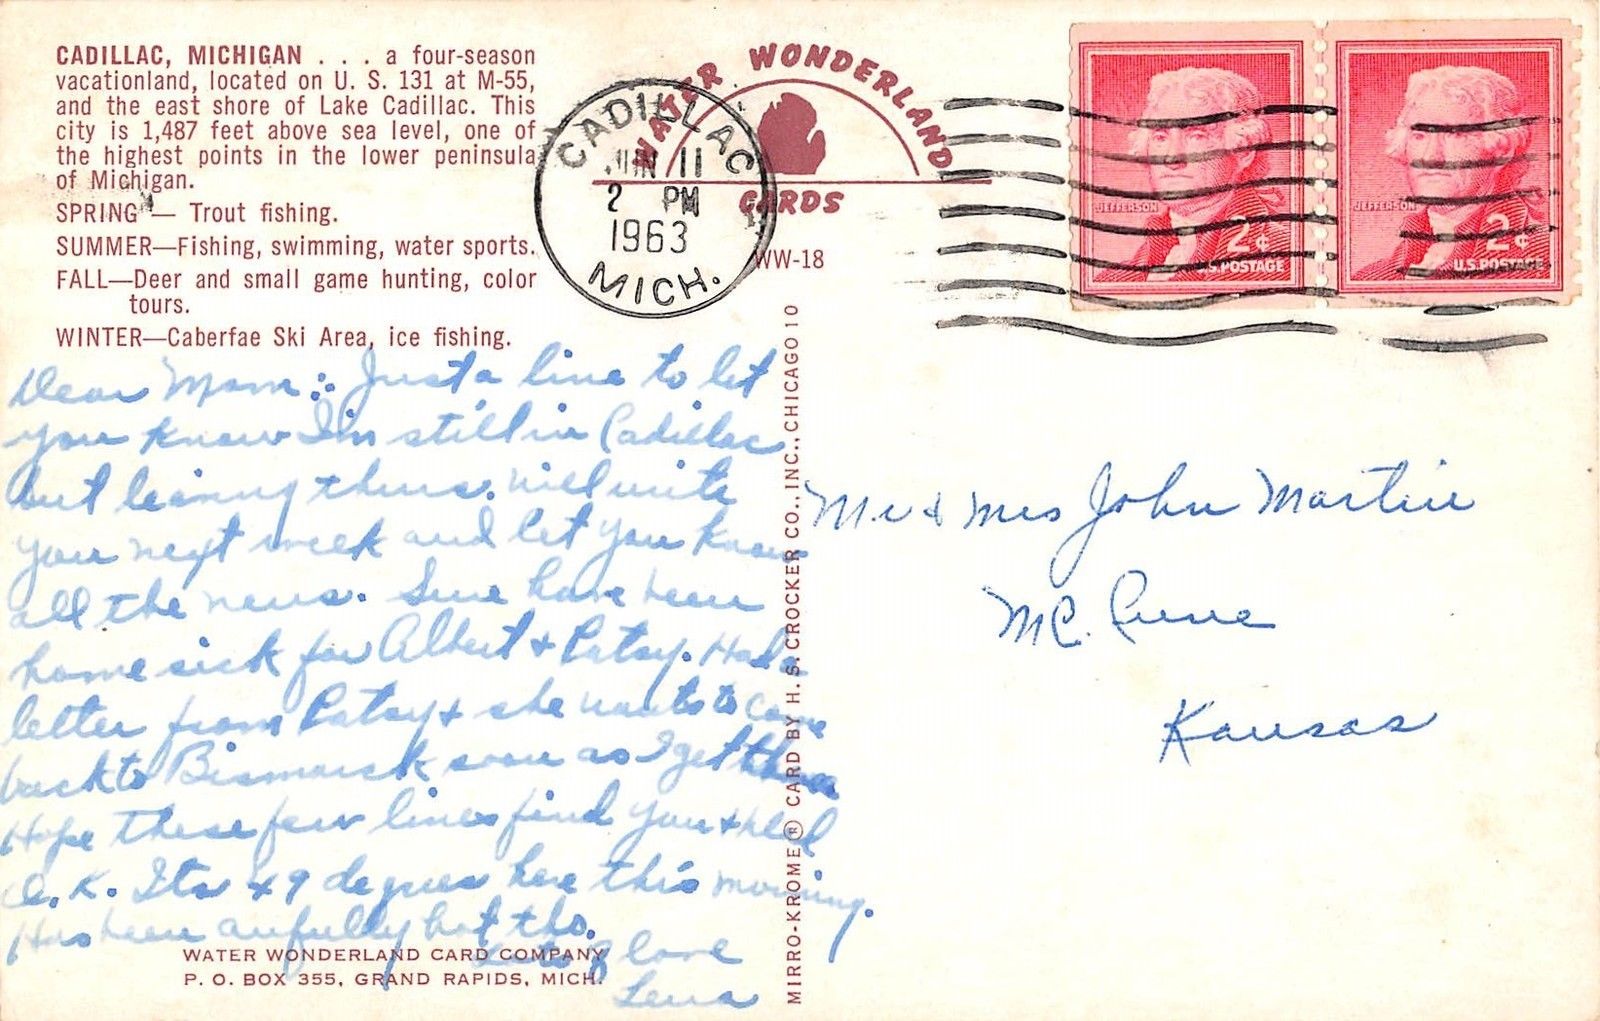 CADILLAC, MICHIGAN . . . a four-season
vacationland, located on U. S. 131 at M-55,
and the east shore of Lake Cadillac. This
city is 1,487 feet above sea level, one of
the highest points in the lower peninsula
of Michigan.
SPRING — Trout fishing.
SUMMER—Fishing, swimming, water sports.
FALL—Deer and small game hunting, color
tours.
WINTER—Caberfae Ski Area, ice fishing.
WATER WONDERLAND
CARDS
WW-18
CADILLAC
JUN 11
2 PM
1963
MICH.
JEFFERSON
2¢
U.S. POSTAGE
JEFFERSON
2¢
U.S. POSTAGE
Dear Mom: Just a line to let
you know I'm still in Cadillac
but leaving thurs. will write
you next week and let you know
all the news. Sure have been
home sick for Albert & Patsy. Had a
letter from Patsy & she wants to come
back to Bismarck soon as I get there
Hope these few lines find you & dad
O.K. Its 49 degrees here this morning.
Has been awfully hot tho.
Lots of love
Lena
WATER WONDERLAND CARD COMPANY
P. O. BOX 355, GRAND RAPIDS, MICH.
MIRRO-KROME® CARD BY H. S. CROCKER CO., INC., CHICAGO 10
Mr & Mrs John Martin
Mc. Cune
Kansas